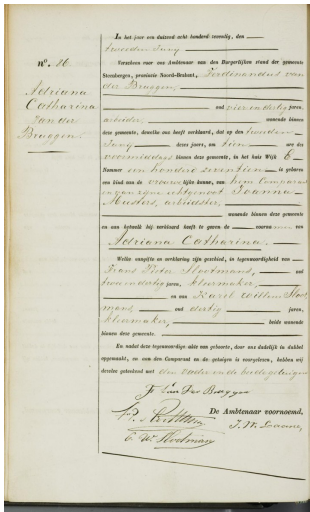 N°. 26
Adriana
Catharina
van der
Bruggen.
In het jaar een duizend acht honderd zeventig, den
tweeden Juny
Verscheen voor ons Ambtenaar van den Burgerlijken stand der gemeente
Steenbergen, provincie Noord-Brabant, Ferdinandus van
der Bruggen,
oud vierendertig jaren,
arbeider, wonende binnen
deze gemeente, dewelke ons heeft verklaard, dat op den tweeden
Juny dezes jaars, om tien ure des
voormiddags binnen deze gemeente, in het huis Wijk E
Nommer een honderd zeventien is geboren
een kind van de vrouwelijke kunne, van hem Comparant
en van zyne echtgenoot Joanna
Musters, arbeidster,
wonende binnen deze gemeente
en aan hetwelk hij verklaard heeft te geven de voornamen van
Adriana Catharina.
Welke aangifte en verklaring zijn geschied, in tegenwoordigheid van
Frans Pieter Slootmans, oud
tweendertig jaren, kleermaker,
en van Karel Willem Sloot
mans, oud dertig jaren,
kleermaker, beide wonende
binnen deze gemeente.
En nadat deze tegenwoordige akte van geboorte, door ons dadelijk in dubbel
opgemaakt, en aan den Comparant en de getuigen is voorgelezen, hebben wij
dezelve geteekend met den vader en de beide getuigen
F. Van Der Bruggen
De Ambtenaar voornoemd,
C. W. Slootmans